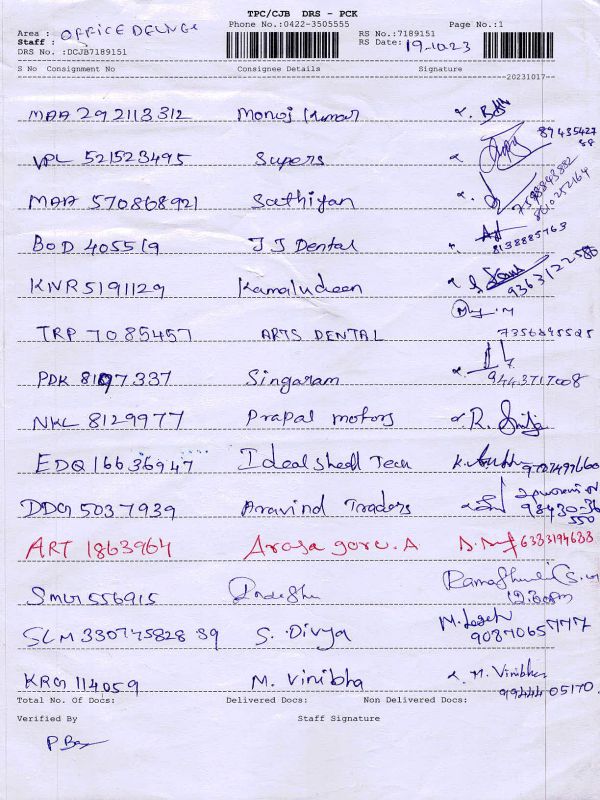 TPC/CJB DRS - PCK
Phone No.:0422-3505555 Page No.:1
Area : OFFICE
Staff : RS No.:7189151
RS Date: 19-10-23
DRS No. :DCJB7189151
S No Consignment No Consignee Details Signature
20231017
MAA 292113312 Monoj Kumar
VPL 521523495 Supers 89435427
MAA 570868921 Sathiyan 8610252164
BOD 405519 JJ Dental 8138885763
KNR 5191129 Kamaludeen 9363122580
TRP 7085457 ARTS DENTAL 7356895525
PDK 8107337 Singaram 9443717008
NKL 8129977 Prapal motors R.
EDQ 16636947 Ideal shell Tech 9787497660
DDG 5037939 Aravind Traders 98430-36
550
ART 1863964 Arasa goru. A 6383194688
SMG 556915
SLM 33074582839 S. Divya 9087065777
KRG 114059 M. Vinibha M. Vinibha
9944405170
Total No. Of Docs: Delivered Docs: Non Delivered Docs:
Verified By Staff Signature